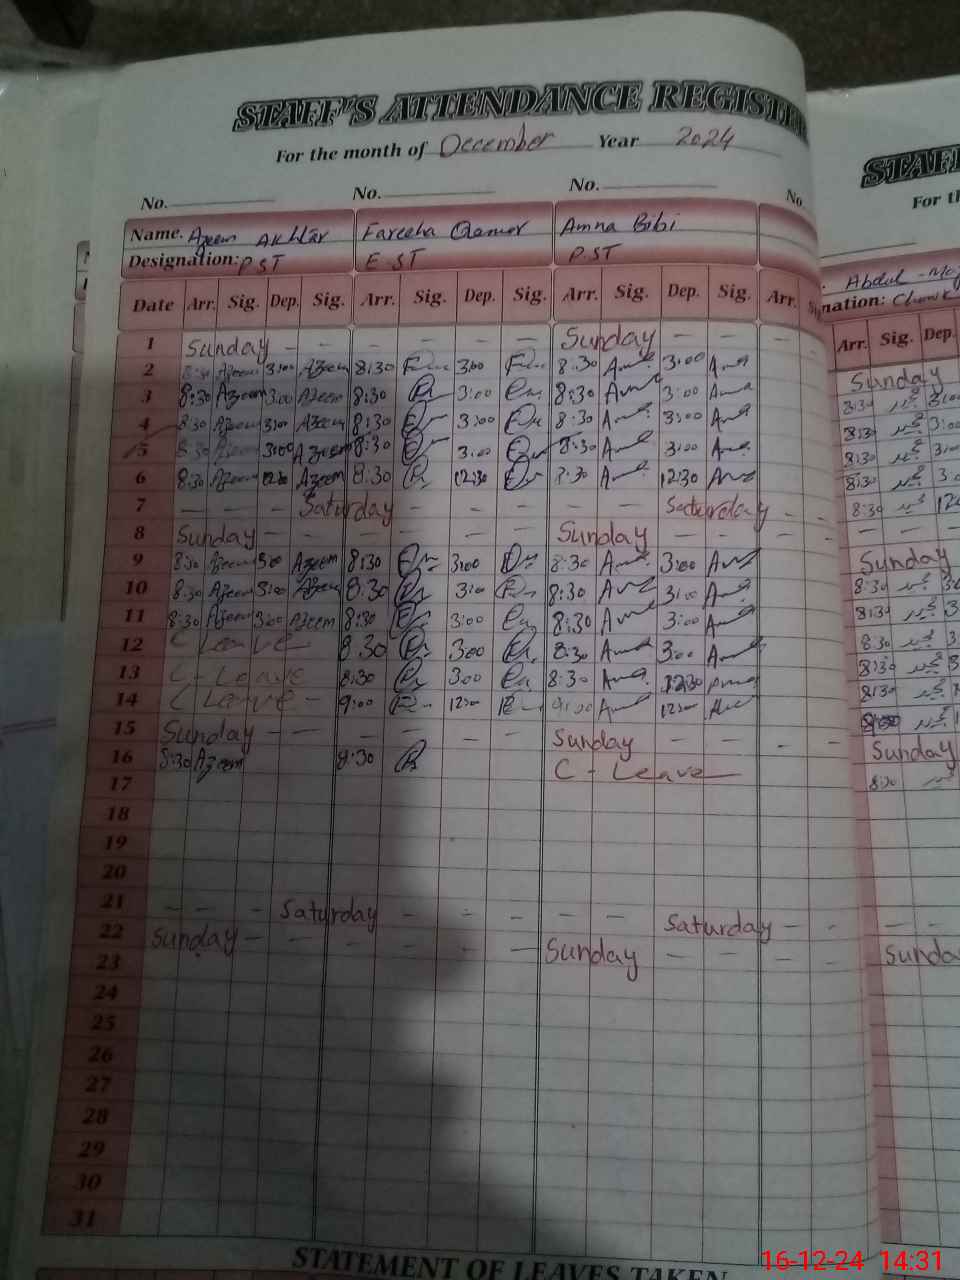 STAFF'S ATTENDANCE REGISTER
For the month of December Year 2024
No. No. No. No.
Name. Azeem Akhtar Fareeha Qamer Amna Bibi
Designation: PST E.ST P.ST
Date Arr. Sig. Dep. Sig. Arr. Sig. Dep. Sig. Arr. Sig. Dep. Sig. Arr.
1 Sunday - - - - - - Sunday - - -
2 8:30 Azeem 3:00 Azeem 8:30 3:00 8:30 3:00
3 8:30 Azeem 3:00 Azeem 8:30 3:00 8:30 3:00
4 8:30 Azeem 3:00 Azeem 8:30 3:00 8:30 3:00
5 8:30 Azeem 3:00 Azeem 8:30 3:00 8:30 3:00
6 8:30 Azeem 12:30 Azeem 8:30 12:30 8:30 12:30
7 - - - Saturday - - - - - - Saturday - -
8 Sunday - - - - - - Sunday - - - -
9 8:30 Azeem 3:00 Azeem 8:30 3:00 8:30 3:00
10 8:30 Azeem 3:00 Azeem 8:30 3:00 8:30 3:00
11 8:30 Azeem 3:00 Azeem 8:30 3:00 8:30 3:00
12 C Leave 8:30 3:00 8:30 3:00
13 C - Leave 8:30 3:00 8:30 12:30
14 C Leave - 9:00 12:00 9:00 12:00
15 Sunday - - - - - - Sunday - - - -
16 8:30 Azeem 8:30 C - Leave
17
18
19
20
21 - - - Saturday - - - - - - Saturday - -
22 Sunday - - - - - - Sunday - - - -
23
24
25
26
27
28
29
30
31
STATEMENT OF LEAVES TAKEN
STAF
For th
Abdul
nation:
Arr. Sig. Dep.
Sunday
8:30
8:30 3:00
8:30
8:30
8:30
Sunday
8:30
8:30
8:30
8:30
8:30
Sunday
8:30
Sunda
16-12-24 14:31